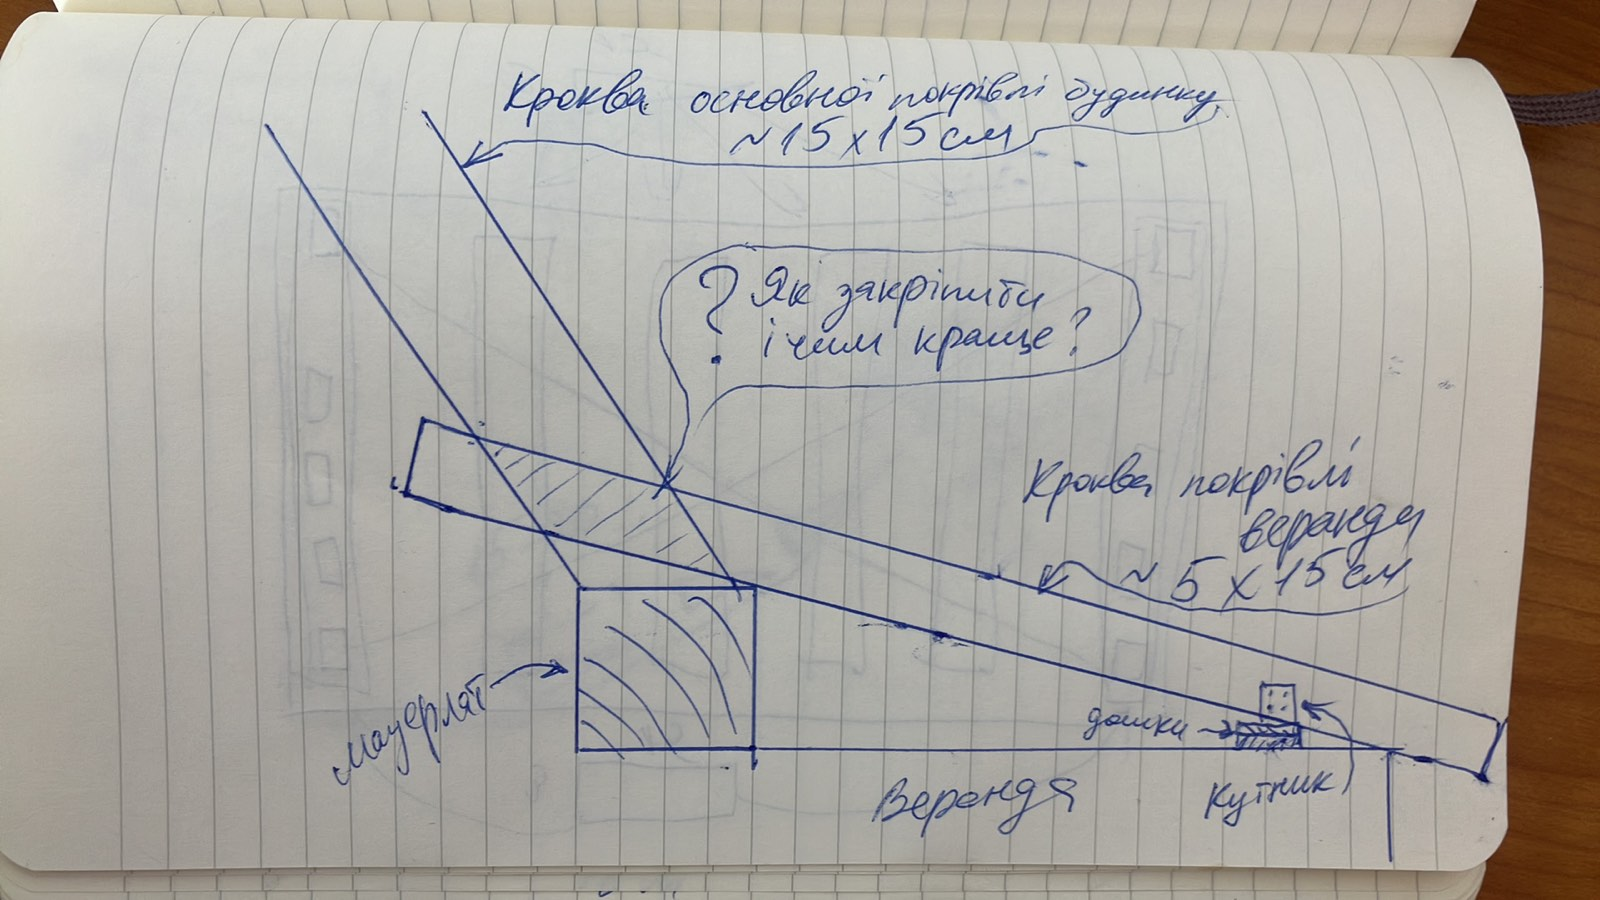 Кроква основної покрівлі будинку
~15х15см
? Як закріпити
і чим краще?
Кроква покрівлі
веранди
~ 5 х 15 см
мауерлат
дошки
Кутник
Веранда